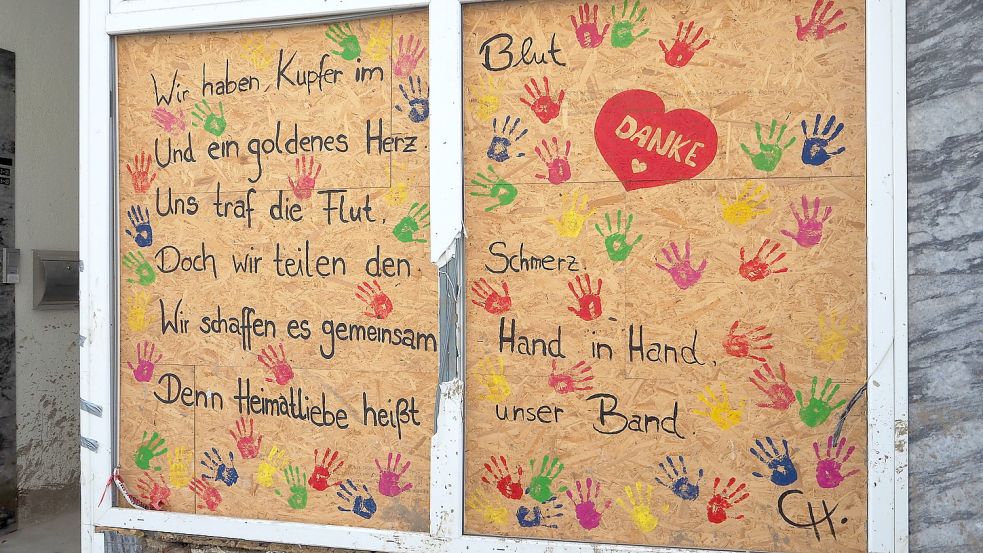 Wir haben Kupfer im
Blut
Und ein goldenes Herz.
DANKE
Uns traf die Flut,
Doch wir teilen den
Schmerz.
Wir schaffen es gemeinsam
Hand in Hand,
Denn Heimatliebe heißt
unser Band.
CH.